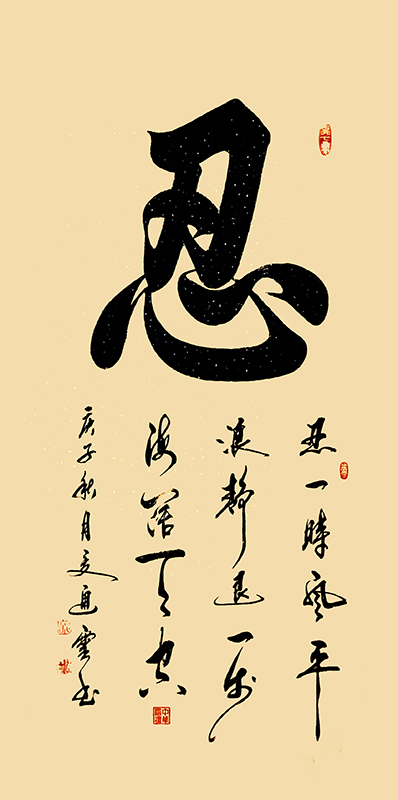 忍
忍一時風平
浪靜退一步
海闊天空
庚子秋月通雲书